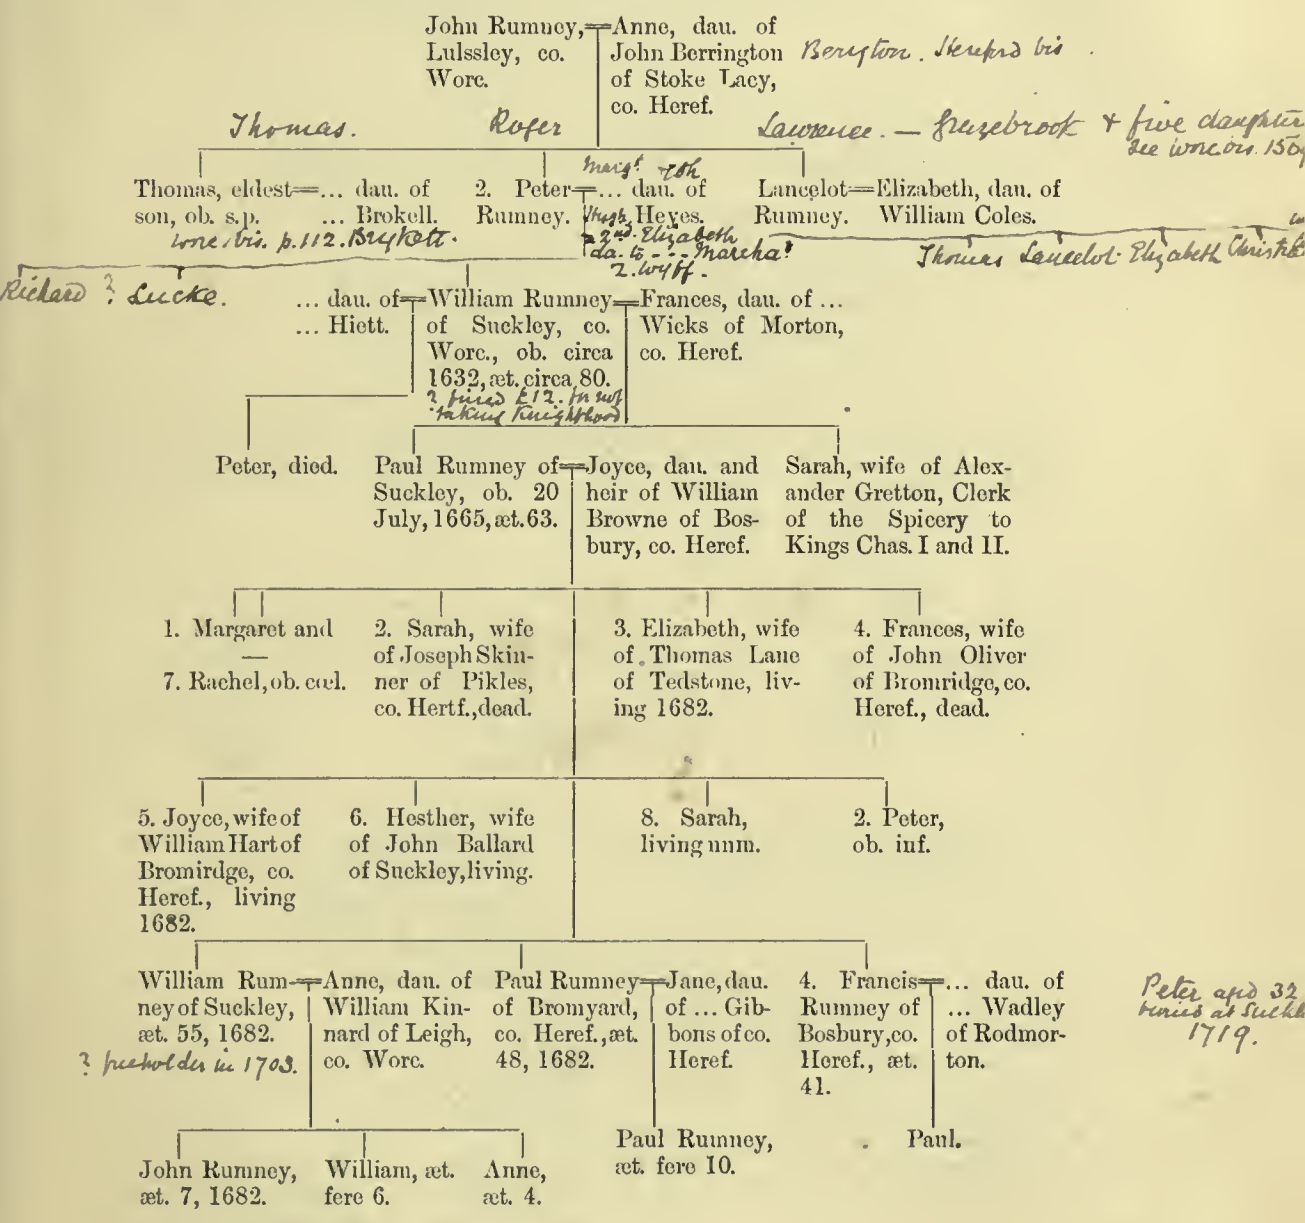 John Rumney,
Lulssley, co.
Worc.
Anne, dau. of
John Berrington
of Stoke Lacy,
co. Heref.
Thomas.
Roger
Lawrence. — & five daughter
Thomas, eldest
son, ob. s.p.
... dau. of
... Brokell.
p. 112. Brykett.
2. Peter
Rumney.
Margt
... dau. of
Hugh Heyes.
2nd. Elizabeth
da. to - - -
2. wyff.
Lancelot
Rumney.
Elizabeth, dau. of
William Coles.
Thomas Lancelot Elizabeth
Richard ? Lucke.
... dau. of
... Hiett.
William Rumney
of Suckley, co.
Worc., ob. circa
1632, æt. circa 80.
? fined £12. for not
taking Knighthood
Frances, dau. of ...
Wicks of Morton,
co. Heref.
Peter, died.
Paul Rumney of
Suckley, ob. 20
July, 1665, æt. 63.
Joyce, dau. and
heir of William
Browne of Bos-
bury, co. Heref.
Sarah, wife of Alex-
ander Gretton, Clerk
of the Spicery to
Kings Chas. I and II.
1. Margaret and
—
7. Rachel, ob. cœl.
2. Sarah, wife
of Joseph Skin-
ner of Pikles,
co. Hertf., dead.
3. Elizabeth, wife
of Thomas Lane
of Tedstone, liv-
ing 1682.
4. Frances, wife
of John Oliver
of Bromridge, co.
Heref., dead.
5. Joyce, wife of
William Hart of
Bromirdge, co.
Heref., living
1682.
6. Hesther, wife
of John Ballard
of Suckley, living.
8. Sarah,
living unm.
2. Peter,
ob. inf.
William Rum-
ney of Suckley,
æt. 55, 1682.
? freeholder in 1703.
Anne, dau. of
William Kin-
nard of Leigh,
co. Worc.
Paul Rumney
of Bromyard,
co. Heref., æt.
48, 1682.
Jane, dau.
of ... Gib-
bons of co.
Heref.
4. Francis
Rumney of
Bosbury, co.
Heref., æt.
41.
... dau. of
... Wadley
of Rodmor-
ton.
Peter aged 32
buried at
1719.
John Rumney,
æt. 7, 1682.
William, æt.
fere 6.
Anne,
æt. 4.
Paul Rumney,
æt. fere 10.
Paul.